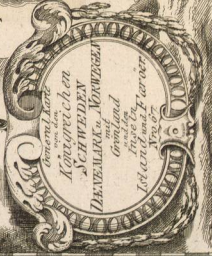 General Karte
von den
Königreichen
SCHWEDEN
DÆNEMARK u. NORWEGEN
mit
Grönland
und den
Inseln
Island und Færoer
Nro. 67.